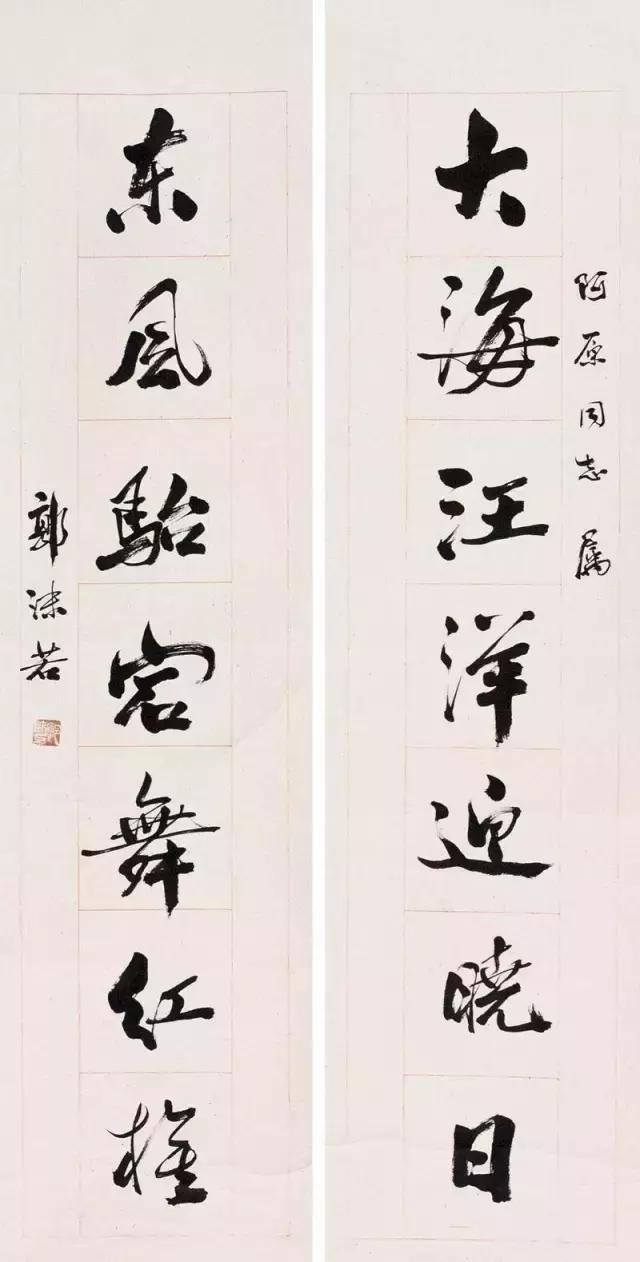 阿原同志 属
大海汪洋迎晓日
东风駘宕舞红
郭沫若